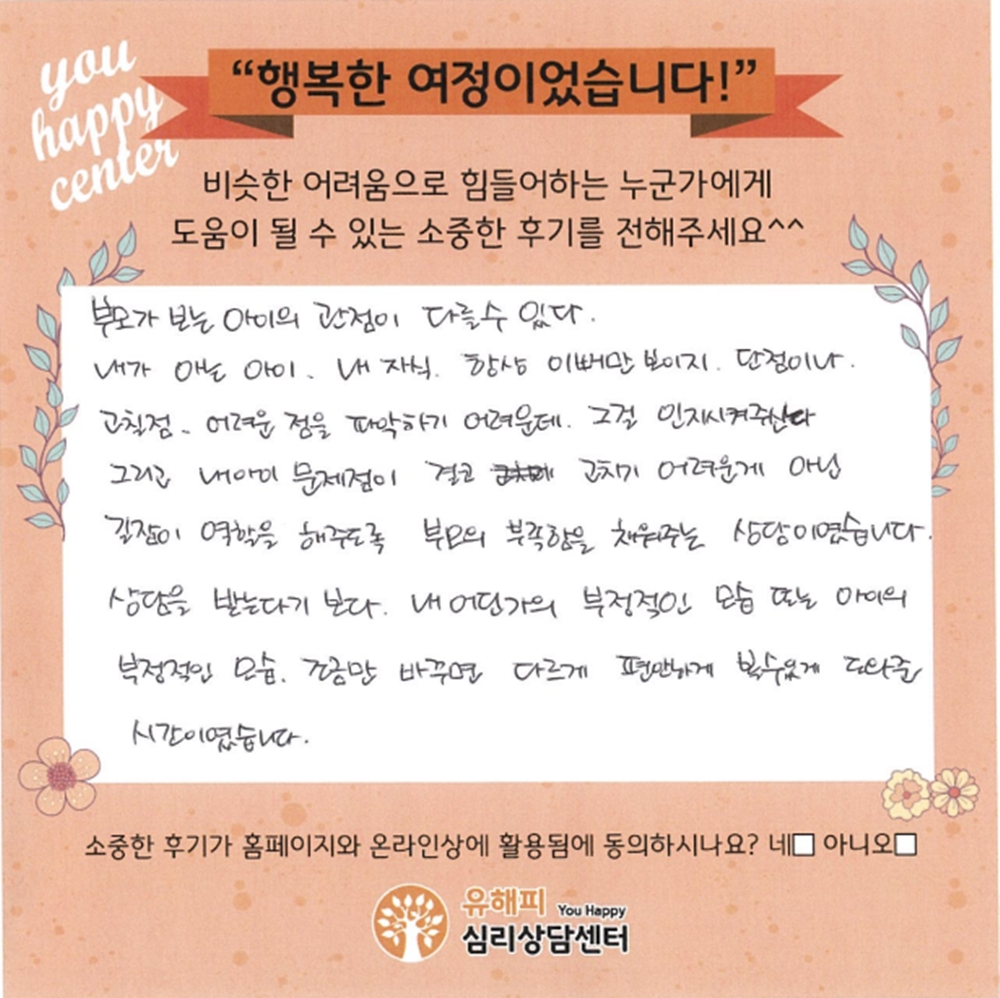 you
happy
center
“행복한 여정이었습니다!”
비슷한 어려움으로 힘들어하는 누군가에게
도움이 될 수 있는 소중한 후기를 전해주세요^^
부모가 보는 아이의 관점이 다를수 있다.
내가 아는 아이. 내 자식. 항상 이뻐만 보이지. 단점이나.
고칠점. 어려운 점을 파악하기 어려운데. 그걸 인지시켜주신다
그리고 내아이 문제점이 결코 고치기 어려운게 아닌
길잡이 역할을 해주도록 부모의 부족함을 채워주는 상담이였습니다.
상담을 받는다기 보다. 내 어딘가의 부정적인 모습 또는 아이의
부정적인 모습. 조금만 바꾸면 다르게 편안하게 볼수있게 도와준
시간이였습니다.
소중한 후기가 홈페이지와 온라인상에 활용됨에 동의하시나요? 네□ 아니오□
유해피 You Happy
심리상담센터